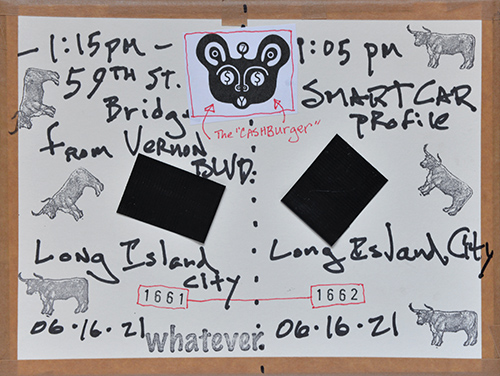 - 1:15pm -
59TH ST.
Bridge
from Vernon
BLVD.
Long Island
City
1661
06.16.21
$ $
The "CASHBurger"
1:05 pm
SMARTCAR
profile
Long Island City
1662
06.16.21
whatever.